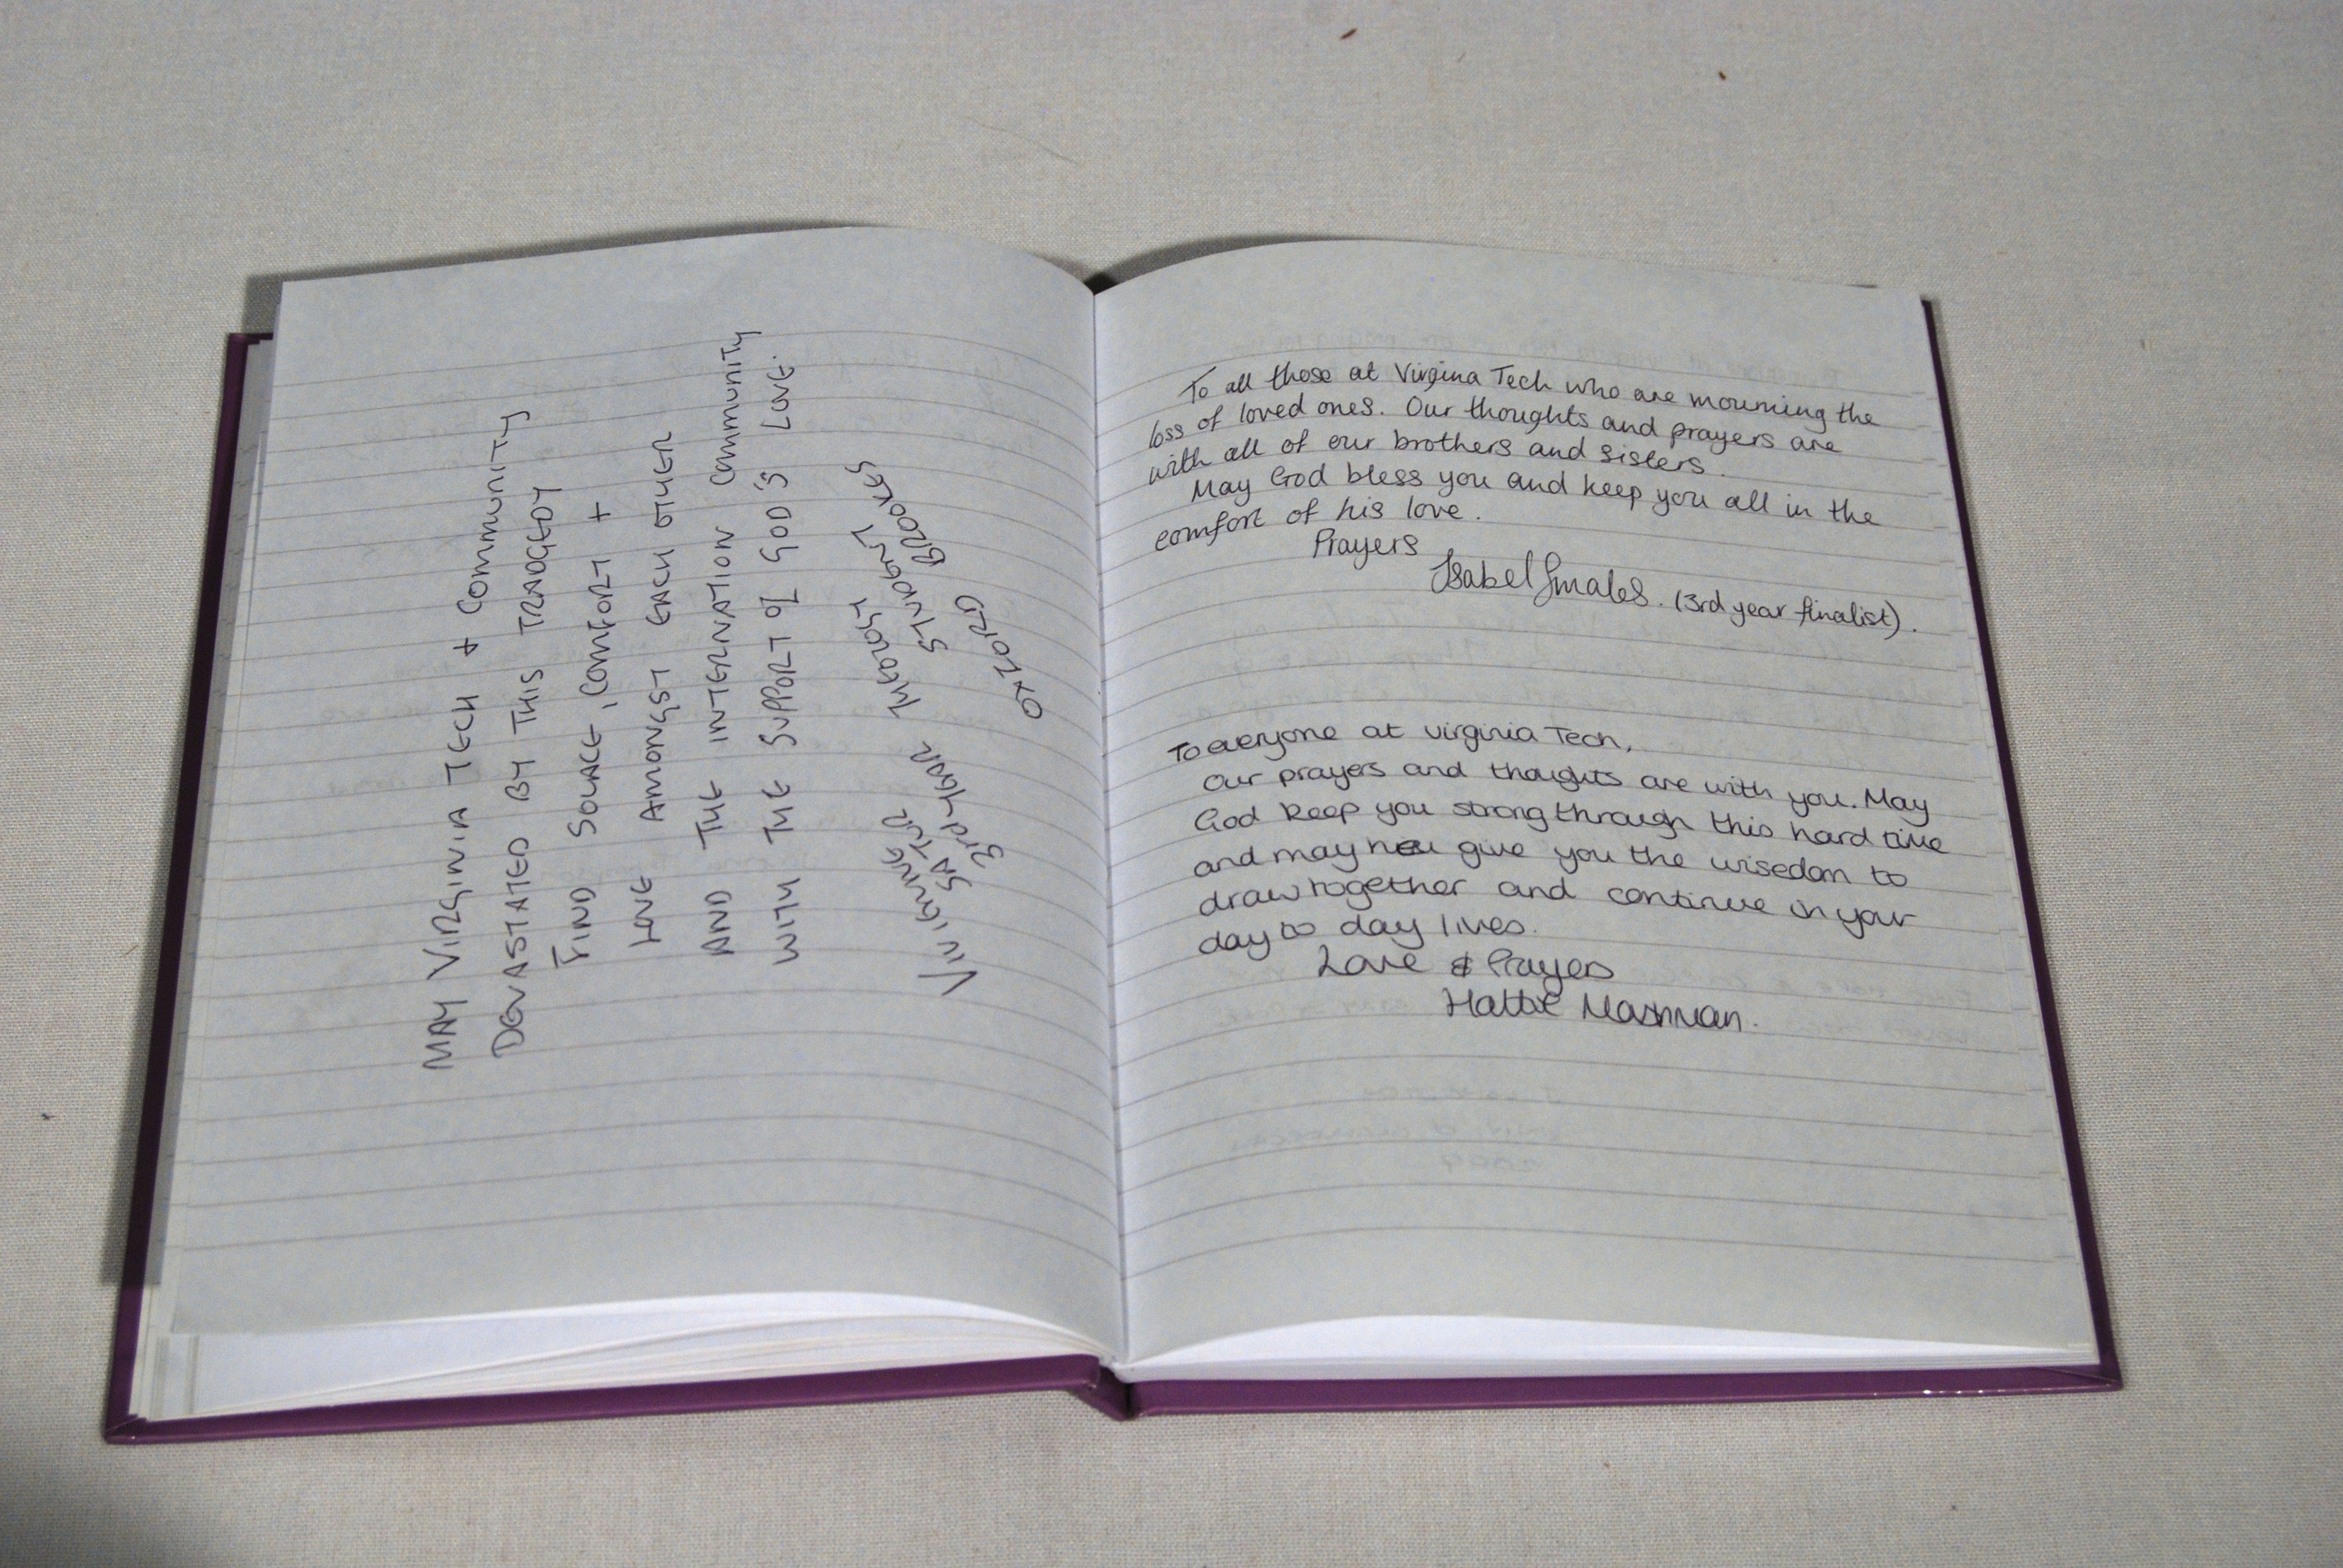 MAY VIRGINIA TECH + COMMUNITY
DEVASTATED BY THIS TRADGEDY
FIND SOLACE, COMFORT +
LOVE AMONGST EACH OTHER
AND THE INTERNATION COMMUNITY
WITH THE SUPPORT OF GOD'S LOVE.
THEOLOGY
STUDENT
3rd YEAR
BROOKES
OXFORD
To all those at Virgina Tech who are mourning the
loss of loved ones. Our thoughts and prayers are
with all of our brothers and sisters.
May God bless you and keep you all in the
comfort of his love.
Prayers
Isabel Smales. (3rd year finalist).
To everyone at Virginia Tech,
Our prayers and thoughts are with you. May
God keep you strong through this hard time
and may give you the wisedom to
draw together and continue in your
day to day lives.
Love & Prayers
Hattie